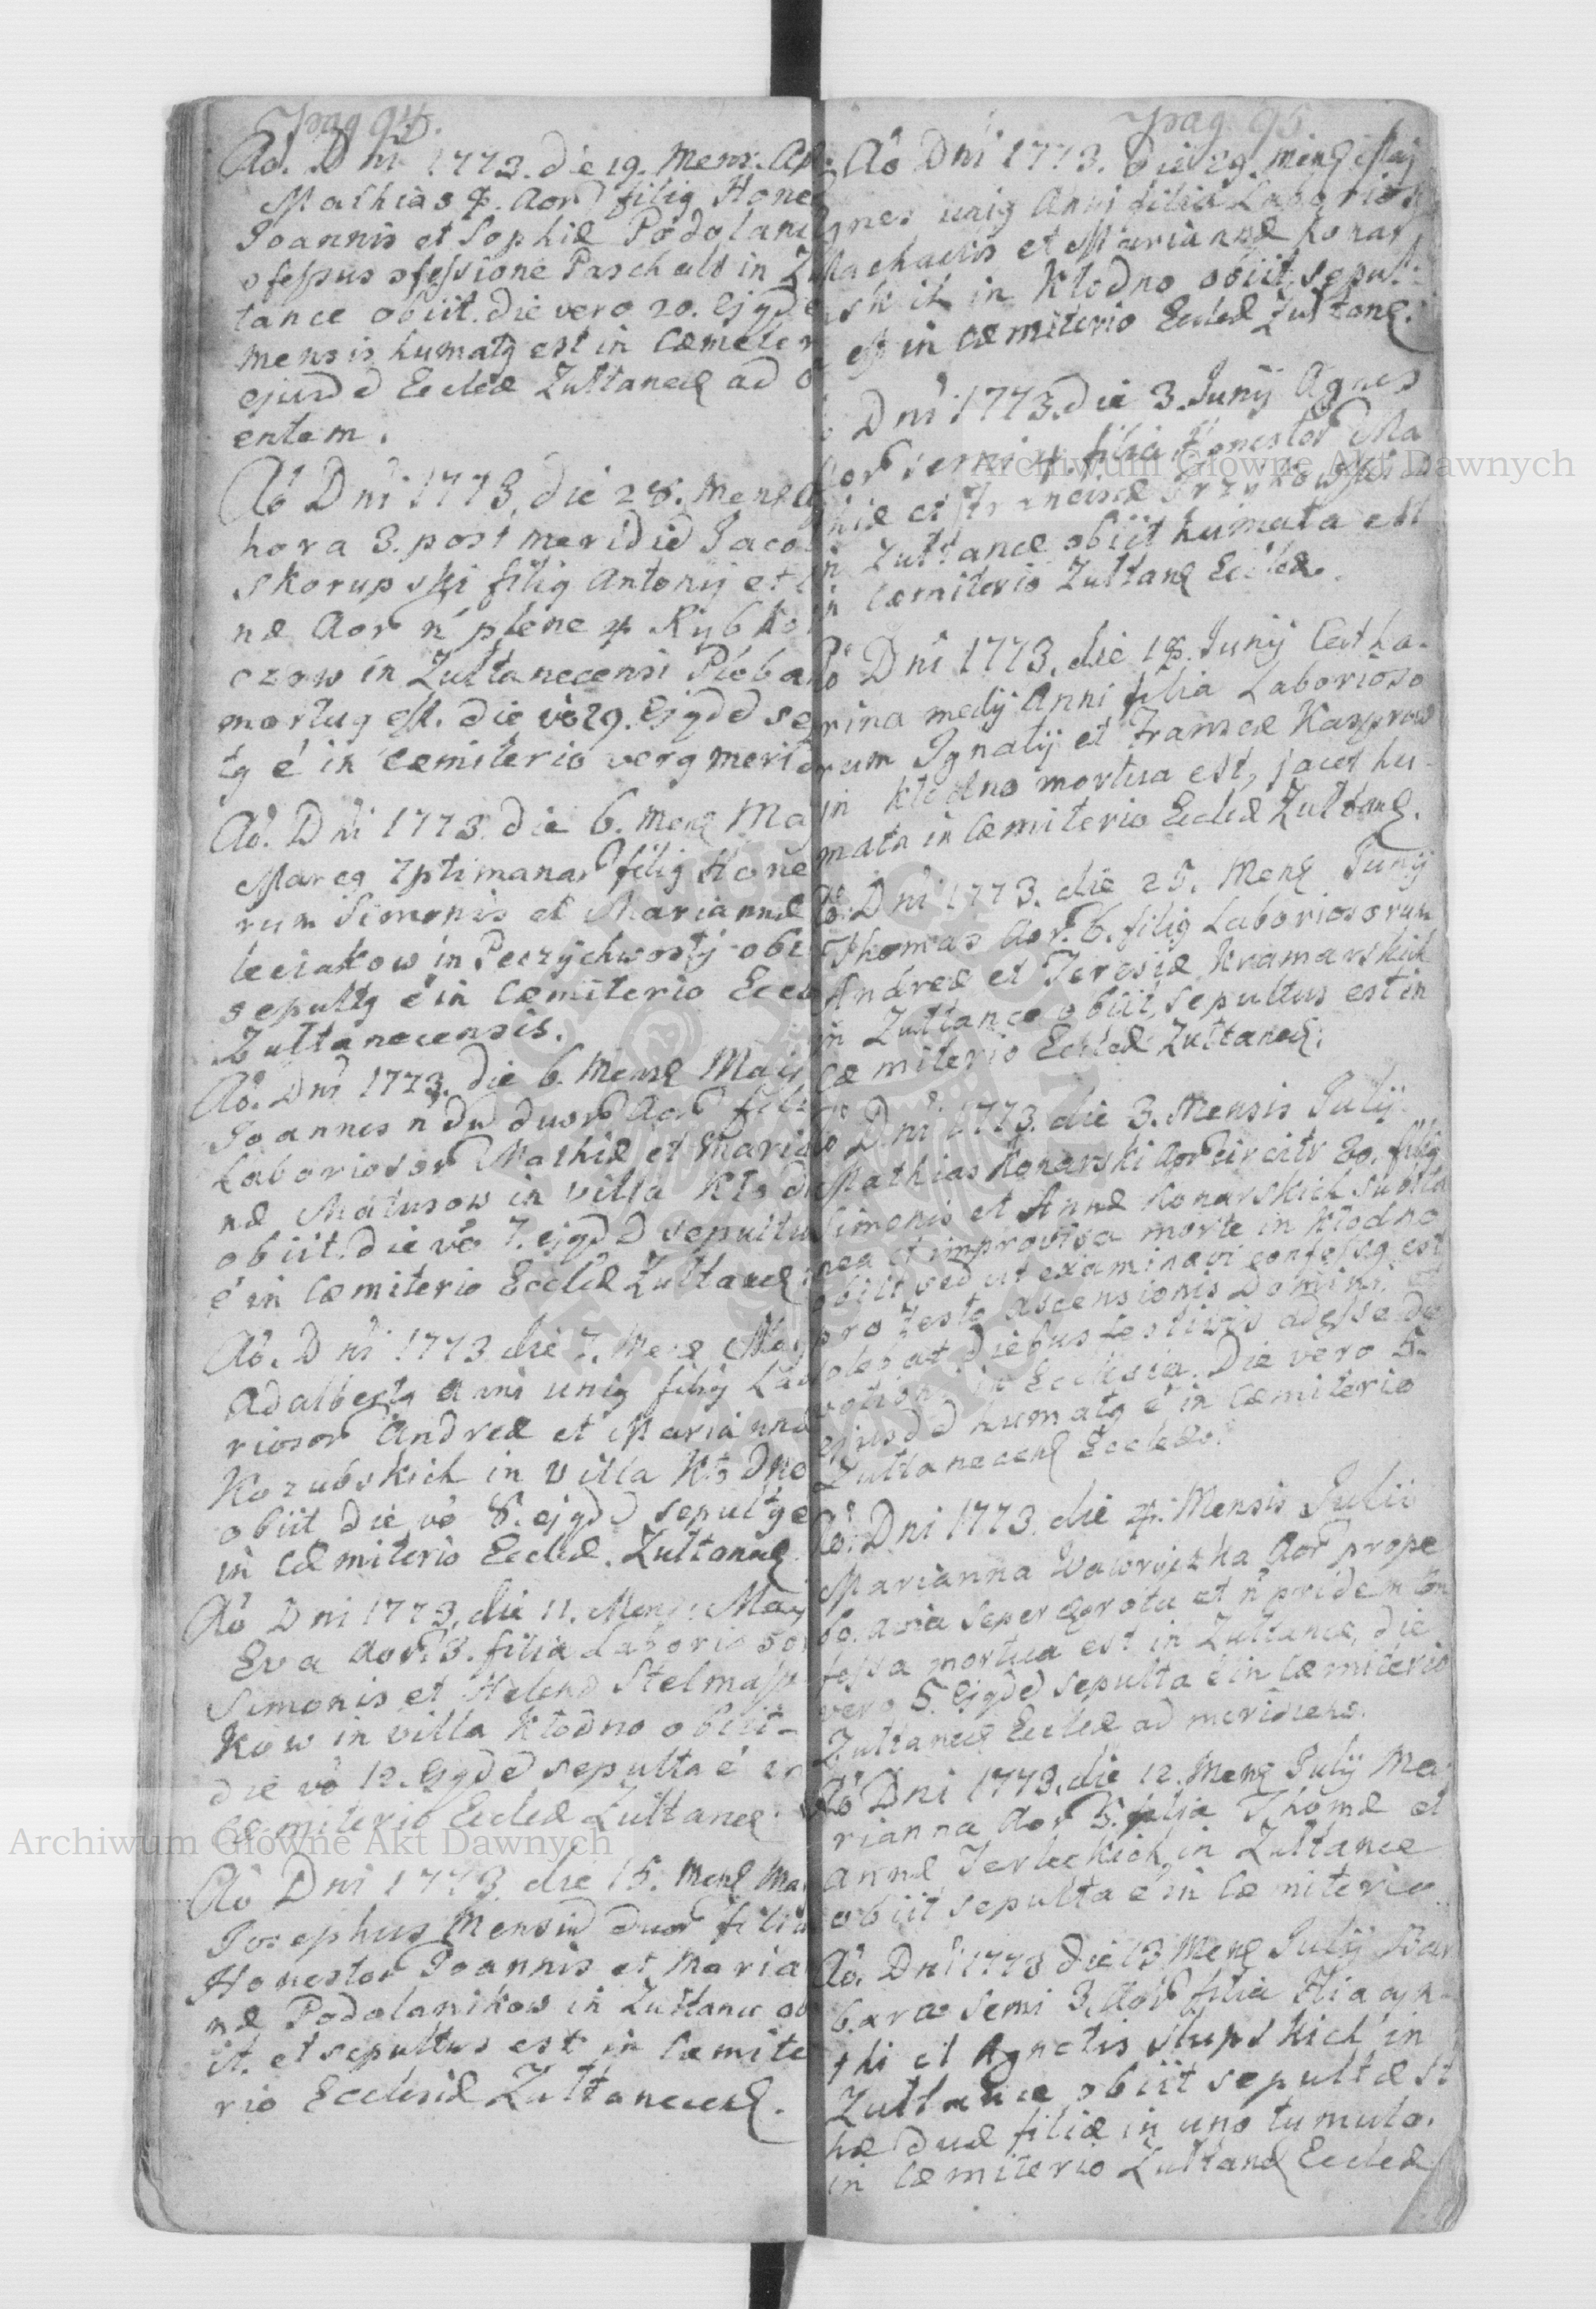 pag 94.
Aō. Dni 1773. die 19. Mens. Ap
Mathias 4. Aor filiq Hones
Joannis et Sophiæ Podolani
Paschali in
tance obiit. die vero 20. ejqd
mensis humatq est in Cæmeter
ejusdd Eccliæ Zultanec ad
entem.
Aō Dni 1773, die 28. Mens
hora 3. post meridiē Jaco
Skorupski filiq Antonij et
næ Aor n plene 4 Rybko
czow in Zultanecensi Pleba
mortuq est. die vō 29. Ejqdd se
tq é in Cæmiterio verq meri
Aō. Dni 1773. die 6. Mens Ma
Marcq filiq Hone
rum Simonis et Mariannæ
leciakow in Peczychwosty obi
sepultq é in Cæmiterio Eccl
Zultanecensis.
Aō. Dni 1773. die 6. Mens Maij
Joannes duor Aor fili
Laborioser Mathiæ et Maria
næ Matusow in villa Kłod
obiit. die vō 7. ejqdd sepultu
é in Cæmiterio Eccliæ Zultanec
Aō. Dni 1773 die 7. Mens Maij
Adalbertq Anni uniq filiq Lab
riosor Andreæ et Mariannæ
Kozubskich in Villa Kłodno
obiit die vō 8. ejqdd sepultq e
in Cæmiterio Eccliæ. Zultanec
Aō Dni 1773, die 11. Mens: Maij
Eva Aor. 3. filia Laboriosor
Simonis et Helenæ Stelmasz
kow in villa Kłodno obiit
die vō 12. Ejqdd sepulta é in
Cæmiterio Eccliæ Zultanec
Aō Dni 1773 die 15. Mens Ma
Josephus Mensiū duor filiu
Honestor Joannis et Maria
næ Podolanikow in Zultance ob
it. et sepultus est in Cæmite
rio Ecclesiæ Zultanecens.
pag 95
Aō Dni 1773. die 29. mens Maij
gnes uniq Anni filia Laborios
Machaelis et Mariannæ Konar
skich in Kłodno obiit, sepul.
est in Cæmiterio Eccliæ Zultanec.
Dni 1773. die 3. Junij Agnes
or semi 4. filia Honestor Ma
thiæ et Franciscæ
in Zultance obiit humata est
in Cæmiterio Zultanec Eccliæ.
Aō Dni 1773. die 18. Junij Catha-
rina medij Anni filia Laborioso
rum Ignatij et Franscæ Kasprow
in Kłodno mortua est, jacet hu-
mata in Cæmiterio Eccliæ Zultanec.
Aō: Dni 1773. die 25. Mens Junij
Thomas Aor. 6. filiq Laboriosorum
Andreæ et Teresiæ Kramarskich
in Zultance obiit, sepultus est in
Cæmiterio Eccliæ Zultanec.
Aō Dni 1773. die 3. Mensis Julij
Mathias Konarski Aor circitr 20. filiq
Simonis et Annæ Konarskich subita
nea et improvisa morte in Kłodno
obiit sed ut examinavi confessq est
pro Festo Ascensionis Domini, et
solebat diebus festivis adesse de
votioni in Ecclesia. Die vero 5.
ejusdd humatq é in Cæmiterio
Zultanecens Eccliæ.
Aō: Dni 1773. die 4. Mensis Julii
Marianna Wawryszka Aor prope
60. semper ægrota et n pridem con
fessa mortua est in Zultance, die
vero 5. Ejqdd sepulta é in Cæmiterio
Zultanec Eccliæ ad meridiem.
Aō Dni 1773. die 12. Mens Julij Ma
rianna Aor 5. filia Thomæ et
Annæ Terleckich in Zultance
obiit sepulta é in Cæmiterio
Aō. Dni 1773 die 13 Mens Julij Bar
bara semi 3. Aor filia Hiacyn-
thi et Agnetis Slupskich in
Zultance obiit sepultæ st
hæ duæ filiæ in uno tumulo.
in Cæmiterio Zultanec Eccliæ
Archiwum Główne Akt Dawnych
Archiwum Główne Akt Dawnych